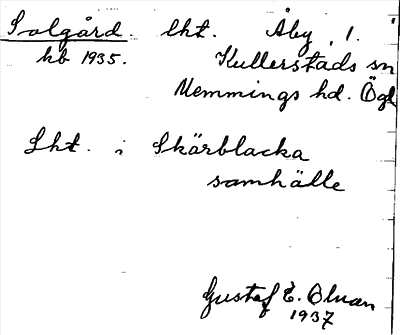 Solgård. lht. Åby, 1.
kb 1935. Kullerstads sn
Memmings hd. Ögl
Lht. i Skärblacka
samhälle
Gustaf E. Olman
1937